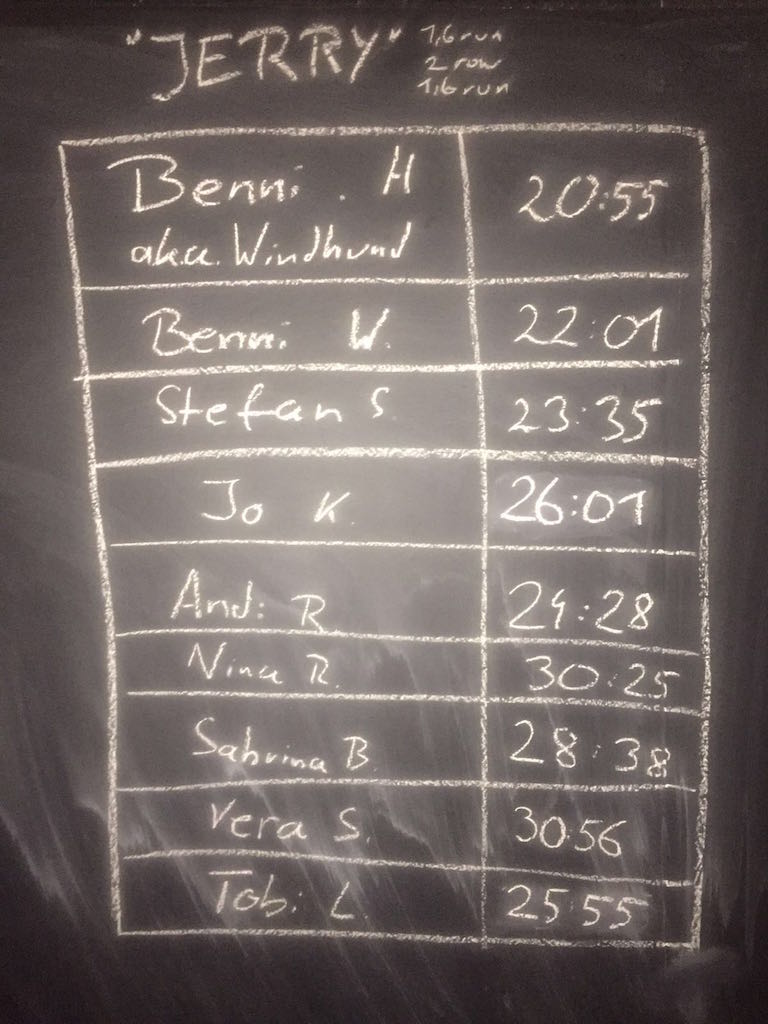 "JERRY"
1,6 run
2 row
1,6 run
Benni . H
a.k.a. Windhund
20:55
Benni W.
22:01
Stefan S.
23:35
Jo K.
26:01
Andi R
24:28
Nina R.
30:25
Sabrina B.
28:38
Vera S.
30:56
Tobi L.
25:55